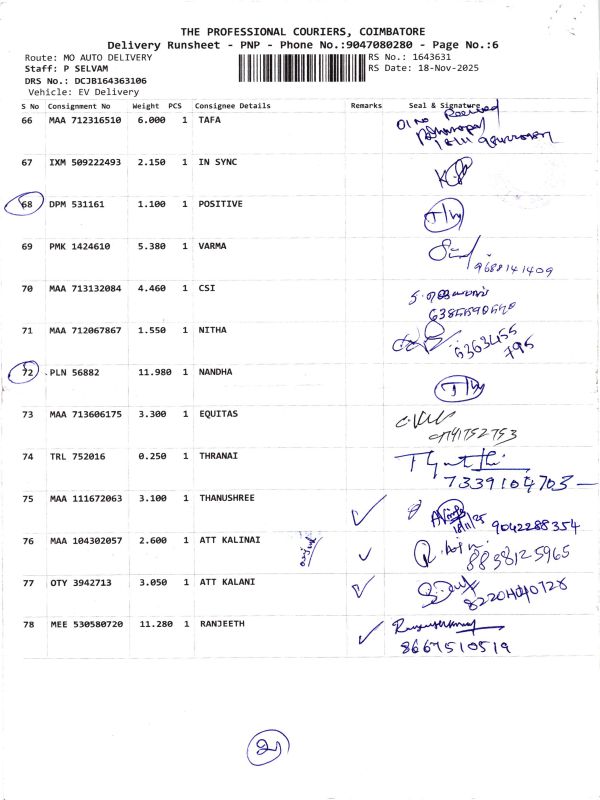 THE PROFESSIONAL COURIERS, COIMBATORE
Delivery Runsheet - PNP - Phone No.:9047080280 - Page No.:6
Route: MO AUTO DELIVERY RS No.: 1643631
Staff: P SELVAM RS Date: 18-Nov-2025
DRS No.: DCJB164363106
Vehicle: EV Delivery
S No Consignment No Weight PCS Consignee Details Remarks Seal & Signature
66 MAA 712316510 6.000 1 TAFA Received
67 IXM 509222493 2.150 1 IN SYNC
68 DPM 531161 1.100 1 POSITIVE
69 PMK 1424610 5.380 1 VARMA
9688141409
70 MAA 713132084 4.460 1 CSI
71 MAA 712067867 1.550 1 NITHA
6363455
795
72 PLN 56882 11.980 1 NANDHA
73 MAA 713606175 3.300 1 EQUITAS
9791752753
74 TRL 752016 0.250 1 THRANAI
7339104703
75 MAA 111672063 3.100 1 THANUSHREE ✓
18/11/25 9042288354
76 MAA 104302057 2.600 1 ATT KALINAI ✓
8838125965
77 OTY 3942713 3.050 1 ATT KALANI ✓
8220404728
78 MEE 530580720 11.280 1 RANJEETH ✓
8667510519